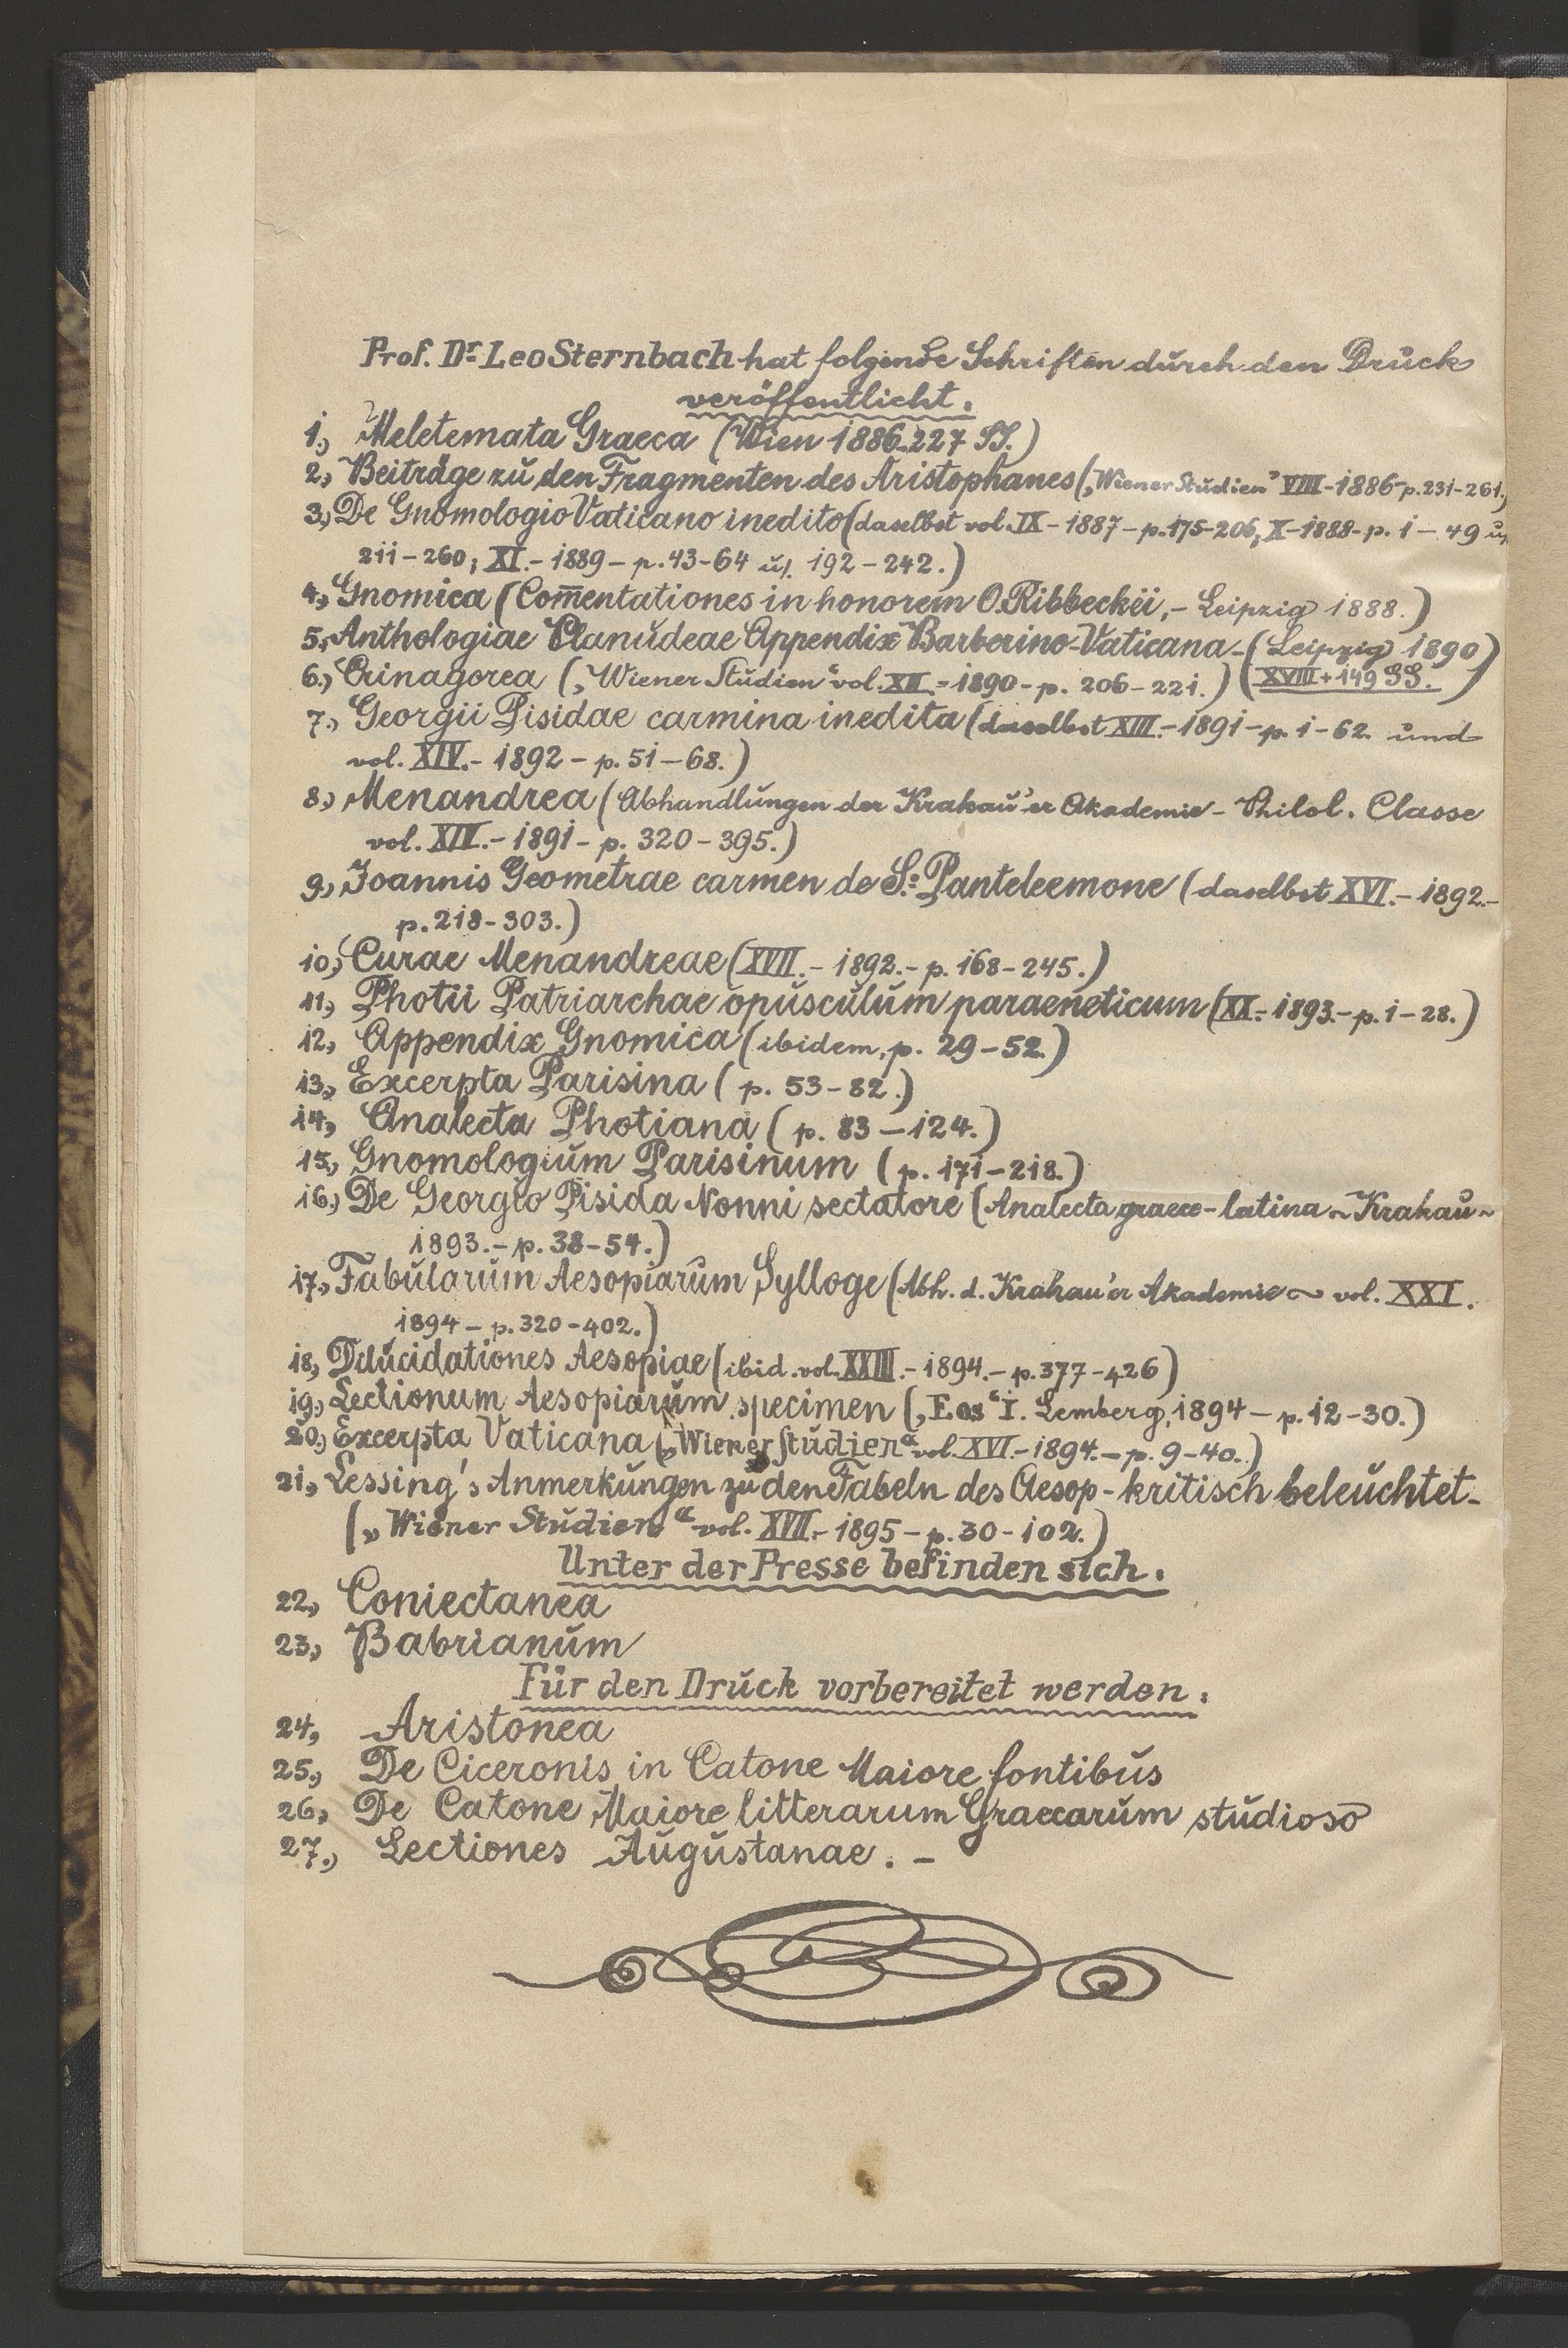 Prof. Dr. Leo Sternbach hat folgende Schriften durch den Druck
veröffentlicht.
1.) Meletemata Graeca (Wien 1886-227 SS.)
2.) Beiträge zu den Fragmenten des Aristophanes („Wiener Studien" VIII-1886-p.231-261.)
3.) De Gnomologio Vaticano inedito (daselbst vol. IX - 1887 - p.175-206, X-1888-p. 1 - 49 u.
211-260; XI.- 1889 - p.43-64 u. 192-242.)
4.) Gnomica (Com̄entationes in honorem O.Ribbeckii,- Leipzig 1888.)
5.) Anthologiae Planudeae Appendix Barberino-Vaticana-(Leipzig 1890)
6.) Crinagorea („Wiener Studien" vol. XII.-1890-p. 206-221.) (XVIII+149 SS.)
7.) Georgii Pisidae carmina inedita (daselbst XIII.-1891-p. 1-62. und
vol. XIV.- 1892 - p. 51-68.)
8.) Menandrea (Abhandlungen der Krakau'er Akademie - Philol. Classe
vol. XIV.- 1891- p. 320-395.)
9.) Joannis Geometrae carmen de S. Panteleemone (daselbst XVI.- 1892.-
p. 218-303.)
10.) Curae Menandreae (XVII.- 1892.- p. 168-245.)
11.) Photii Patriarchae opusculum paraeneticum (XX.-1893.-p. 1-28.)
12.) Appendix Gnomica (ibidem, p. 29-52.)
13.) Excerpta Parisina ( p. 53-82.)
14.) Analecta Photiana ( p. 83-124.)
15.) Gnomologium Parisinum ( p. 171-218.)
16.) De Georgio Pisida Nonni sectatore (Analecta graeco-latina ~ Krakau ~
1893.- p. 38-54.)
17.) Fabularum Aesopiarum Sylloge (Abh. d. Krakau'er Akademie ~ vol. XXI.
1894 - p. 320-402.)
18.) Dilucidationes Aesopiae (ibid. vol. XXIII.-1894.-p. 377-426)
19.) Lectionum Aesopiarum specimen („Eos" I. Lemberg, 1894 - p. 12-30.)
20.) Excerpta Vaticana („Wiener Studien" vol. XVI.-1894.-p. 9-40.)
21.) Lessing's Anmerkungen zu den Fabeln des Aesop - kritisch beleuchtet-
(„Wiener Studien" vol. XVII.- 1895 - p. 30-102.)
Unter der Presse befinden sich.
22.) Coniectanea
23.) Babrianum
Für den Druck vorbereitet werden.
24.) Aristonea
25.) De Ciceronis in Catone Maiore fontibus
26.) De Catone Maiore litterarum Graecarum studioso
27.) Lectiones Augustanae. -